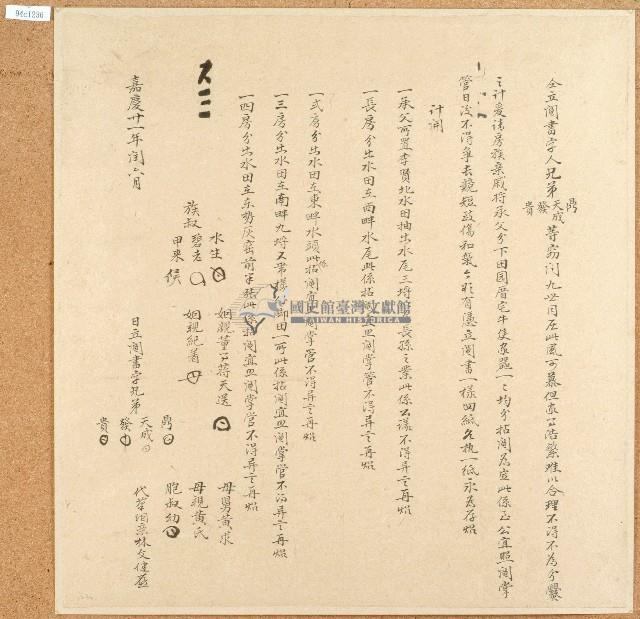 94c1236
仝立鬮書字人兄弟鼎天成發貴等竊聞九世同居此風可慕但家口浩繁難以合理不得不為分爨
之計爰請房族親戚將承父分下田園厝宅牛隻家器一一均分拈鬮為定此係至公宜照鬮掌
管日後不得爭長競短致傷和氣今欲有憑立鬮書一樣四紙各執一紙永為存炤
計開
一承父所置李賢北水田抽出水尾三埒長孫之業此係公議不得異言再炤
一長房分出水田在西畔水尾此係拈鬮宜照鬮掌管不得異言再炤
一弍房分出水田在東畔水頭此係拈鬮宜照鬮掌管不得異言再炤
一三房分出水田在南畔九埒又帶田一所此係拈鬮宜照鬮掌管不得異言再炤
一四房分出水田在東勢灰窑前此係拈鬮宜照鬮掌管不得異言再炤
母舅黃求
母親黃氏
胞叔幼
代筆姻親林文健
姻親董公蔣天選
姻親紀著
族叔
水生
碧老
甲來
日立鬮書字兄弟
鼎
天成
發
貴
嘉慶廿一年閏六月
國史館臺灣文獻館
TAIWAN HISTORICA